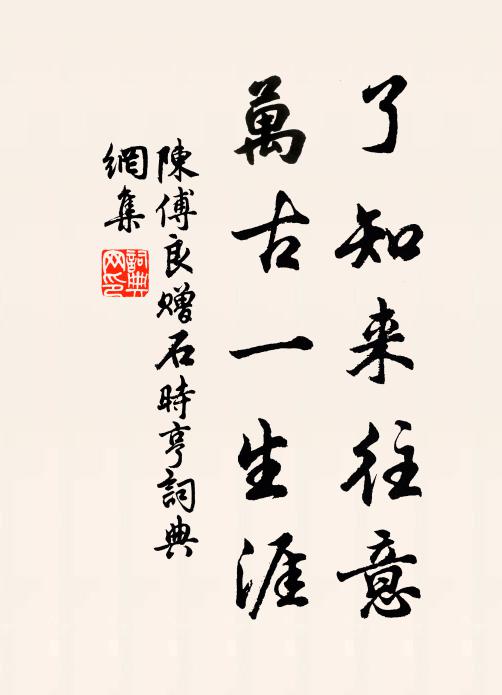 了知来往意
萬古一生涯
陳傅良贈石時亨詞典
網集
詞典网印